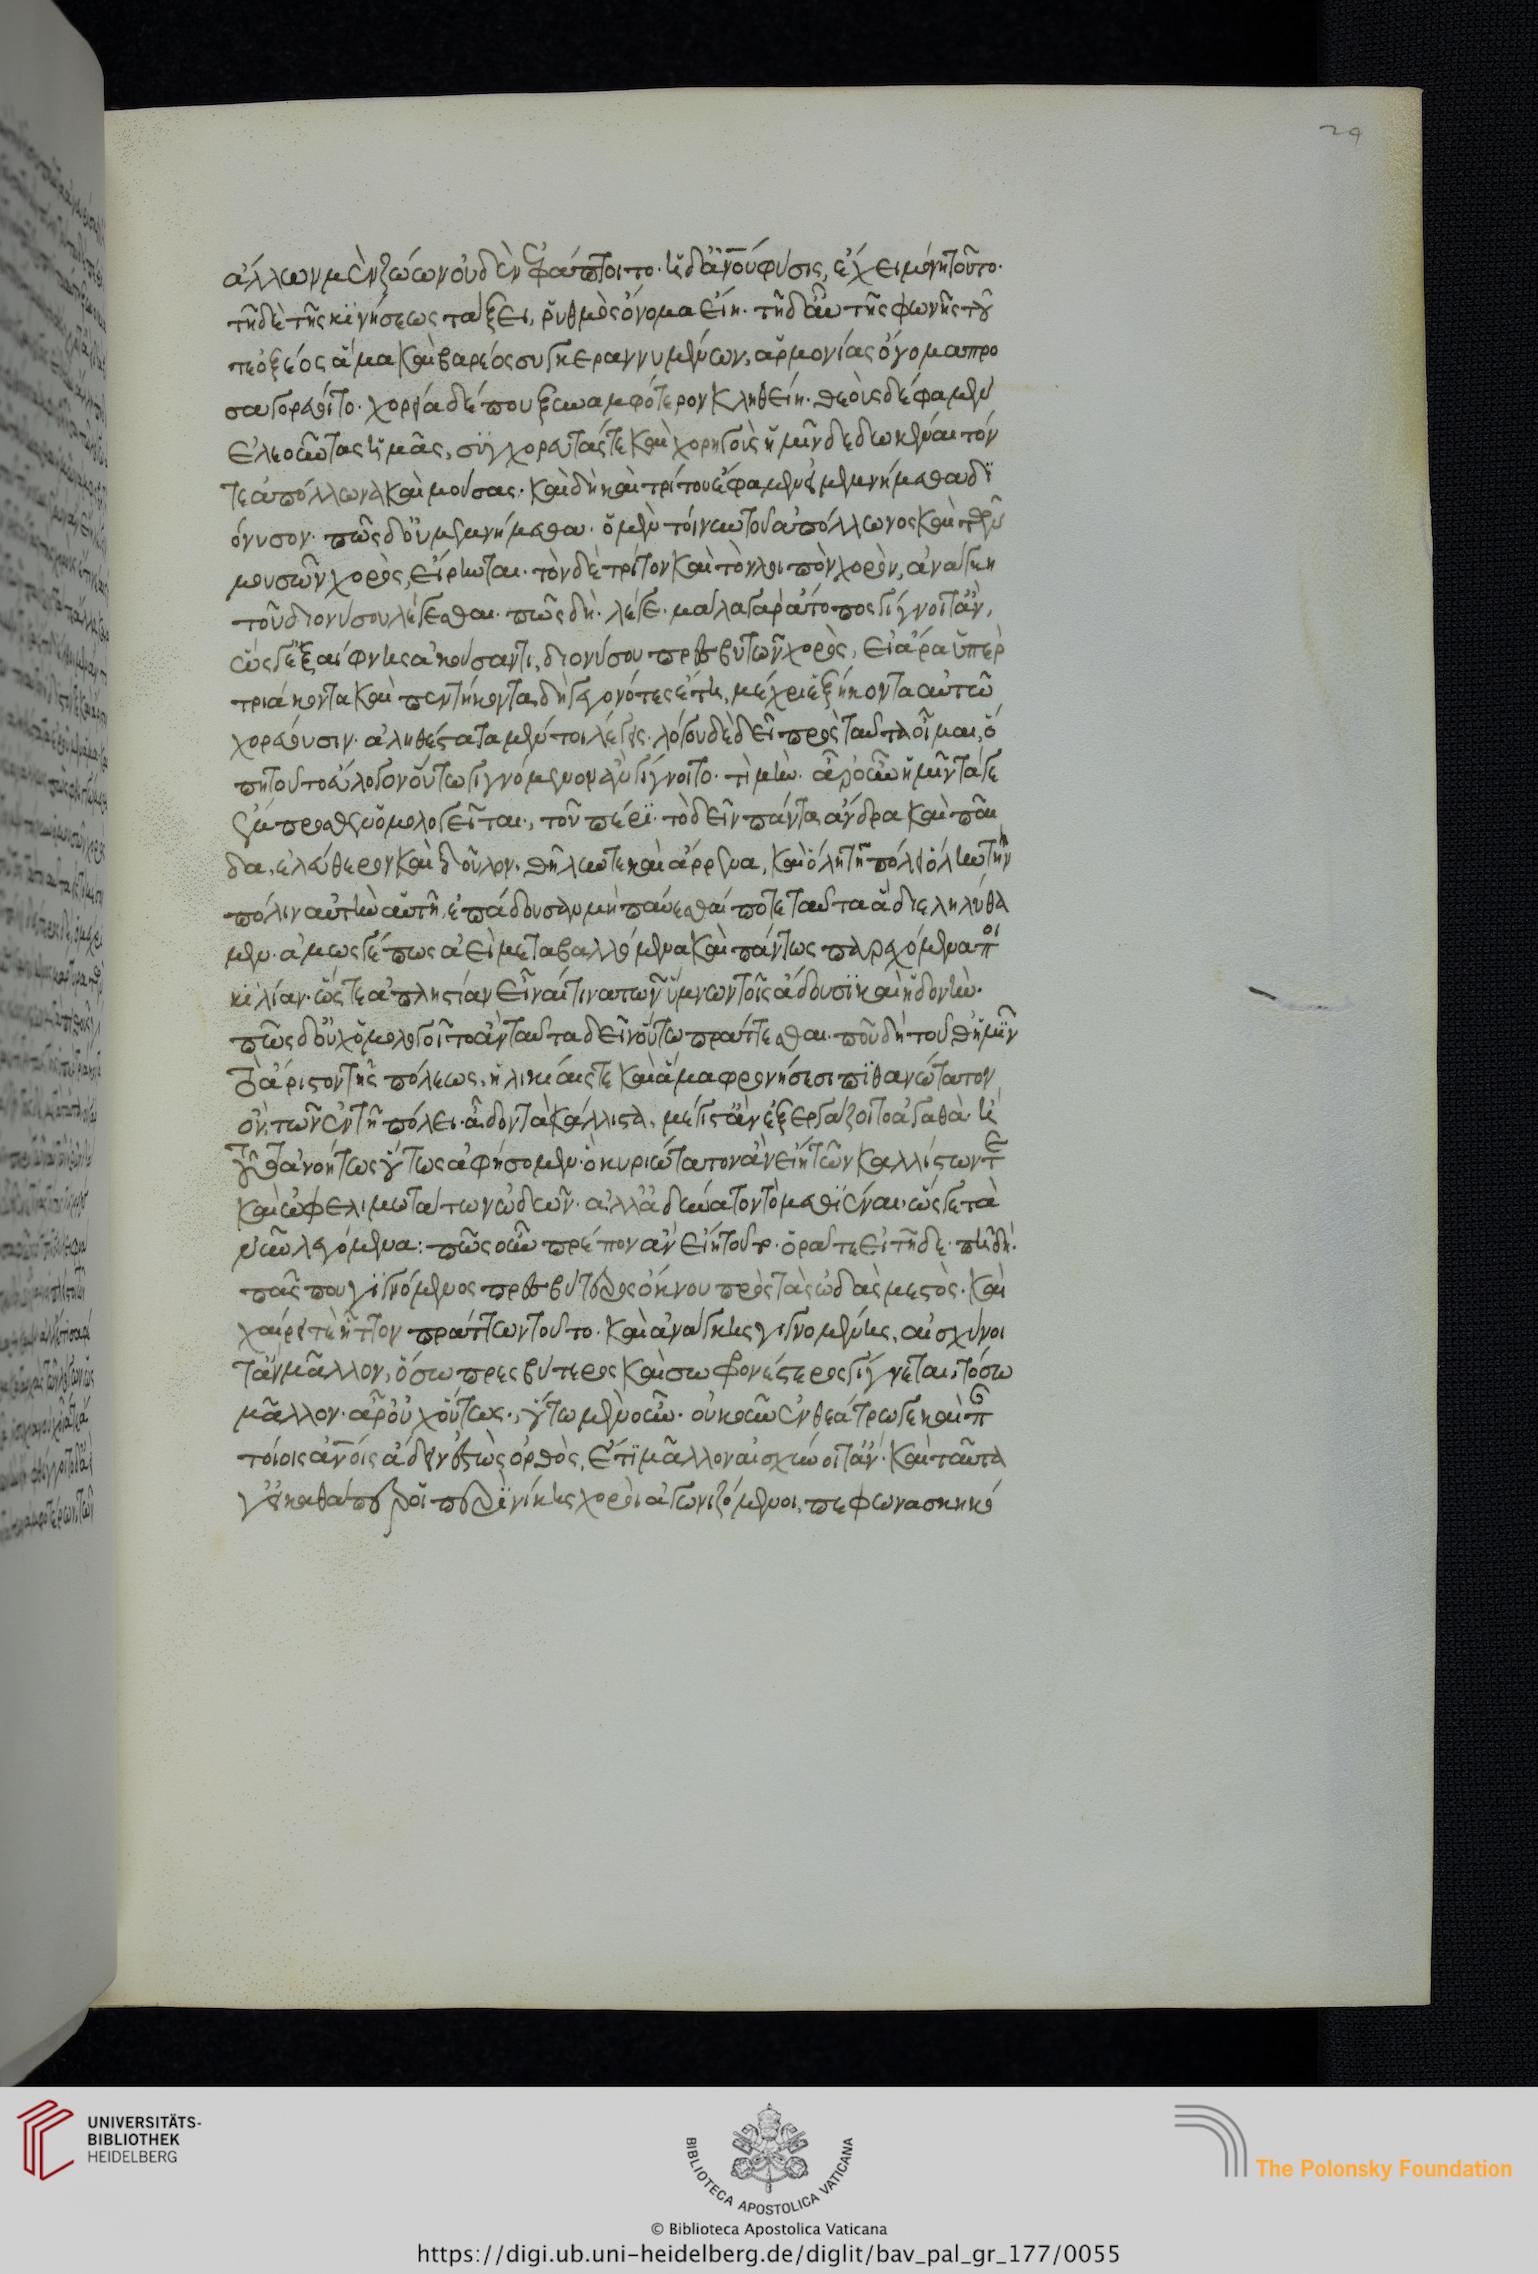 29
ἄλλων μὲν ζώων οὐδὲν ἐφάπτοιτο· ἡ δ' ἀνου φύσις, ἔχει μόνη τοῦτο·
τῆ δὲ τῆς κινήσεως τάξει, ῥυθμὸς ὄνομα εἴη· τῆ δ' αὖ τῆς φωνῆς τοῦ
τε ὀξέος ἅμα καὶ βαρέος συγκεραννυμένων, ἁρμονίας ὄνομα προ
σαγορεύοιτο· χορεία δέ που ξυναμφότερον κληθείη· θεοὺς δέ φαμεν
ἐλεοῦντας ἡμᾶς, συγχορευτάς τε καὶ χορηγοὺς ἡμῖν δεδωκέναι τόν
τε ἀπόλλωνα καὶ μούσας· καὶ δὴ καὶ τρίτον ἔφαμεν εἰ μεμνήμεθα δι
όνυσον· πῶς δ' οὐ μεμνήμεθα· ὁ μὲν τοίνυν τοῦ ἀπόλλωνος καὶ τῶν
μουσῶν χορὸς, εἴρηνται· τὸν δὲ τρίτον καὶ τὸν λοιπὸν χορὸν, ἀνάγκη
τοῦ διονύσου λέγεσθαι· πῶς δὴ· λέγε· μάλα γὰρ ἄτοπος γίγνοιτ' ἂν,
ὥς γε ἐξαίφνης ἀκούσαντι, διονύσου πρεσβυτῶν χορὸς, εἰ ἄρα ὑπὲρ
τριάκοντα καὶ πεντήκοντα δὴ γεγονότες ἔτη, μέχρι ἑξήκοντα αὐτῶ
χορεύουσιν· ἀληθέστατα μέν τοι λέγεις· λόγου δὲ δεῖ πρὸς ταῦτα οἶμαι, ὅ
πη τοῦτο εὔλογον οὕτω γιγνόμενον ἂν γίγνοιτο· τί μήν· ἆρ' οὖν ἡμῖν τά γε
ἔμπροσθεν ὁμολογεῖται, τοῦ πέρι· τὸ δεῖν πάντα ἄνδρα καὶ παῖ
δα, ἐλεύθερον καὶ δοῦλον, θῆλύν τε καὶ ἄρρενα, καὶ ὅλη τῆ πόλει ὅλην τὴν
πόλιν αὐτὴν αὑτῆ, ἐπάδουσαν μὴ παύεσθαί ποτε ταῦτα ἃ διεληλύθα
μεν· ἀμῶς γέ πως ἀεὶ μεταβαλλόμενα καὶ πάντως παρεχόμενα ποι
κιλίαν· ὥστε ἀπληστίαν εἶναί τινα τῶν ὕμνων τοῖς ἄδουσι καὶ ἡδονήν·
πῶς δ' οὐχ ὁμολογοῖτο ἂν ταῦτα δεῖν οὕτω πράττεσθαι· ποῦ δὴ τοῦθ' ἡμῖν
τὸ ἄριστον τῆς πόλεως, ἡλικίαις τε καὶ ἅμα φρονήσεσι πιθανώτατον
ὂν, τῶν ἐν τῆ πόλει· ἄδον τὰ κάλλιστα, μέγιστ' ἂν ἐξεργάζοιτο ἀγαθὰ· ἢ
τοῦτο ἀνοήτως οὕτως ἀφήσομεν· ὃ κυριώτατον ἂν εἴη τῶν καλλίστων τε
καὶ ὠφελιμωτάτων ὠδῶν· ἀλλ' ἀδύνατον τὸ μεθιέναι· ὥς γε τὰ
νῦν λεγόμενα: πῶς οὖν πρέπον ἂν εἴη τοῦτο· ὁρᾶτε εἰ τῆδε· πῆ δή·
πᾶς που γιγνόμενος πρεσβύτερος ὄκνου πρὸς τὰς ὠδὰς μεστὸς· καὶ
χαίρει τε ἧττον πράττων τοῦτο· καὶ ἀνάγκης γιγνομένης, αἰσχύνοι
τ' ἂν μᾶλλον, ὅσω πρεσβύτερος καὶ σωφρονέστερος γίγνεται, τόσω
μᾶλλον· ἆρ' οὐχ οὕτως, οὕτω μὲν οὖν· οὐκοῦν ἐν θεάτρω γε καὶ παν
τοίοις ἀνοις ἄδειν ἑστὼς ὀρθὸς, ἔτι μᾶλλον αἰσχύνοιτ' ἄν· καὶ ταῦτα
γ' εἰ καθάπερ οἱ περὶ νίκης χοροὶ ἀγωνιζόμενοι, πεφωνασκηκό
UNIVERSITÄTS-
BIBLIOTHEK
HEIDELBERG
BIBLIOTECA APOSTOLICA VATICANA
The Polonsky Foundation
© Biblioteca Apostolica Vaticana
https://digi.ub.uni-heidelberg.de/diglit/bav_pal_gr_177/0055